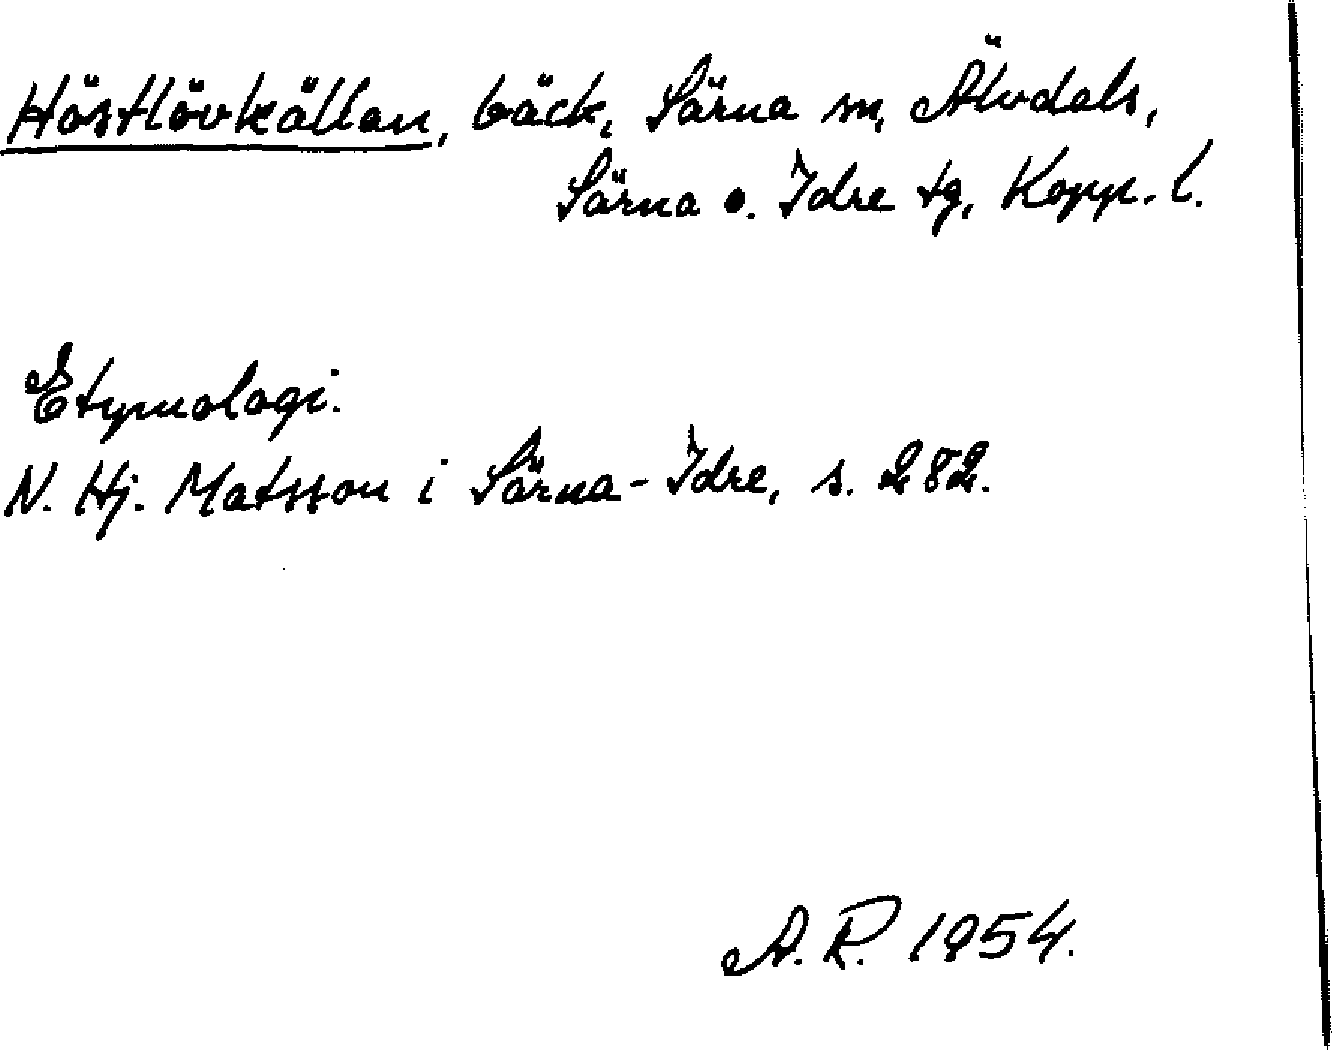 Höstlövkällan, bäck, Särna sn, Älvdals,
Särna o. Idre tg, Kopp. l.
Etymologi.
N. Hj. Matsson i Särna-Idre, s. 282.
A. R. 1954.